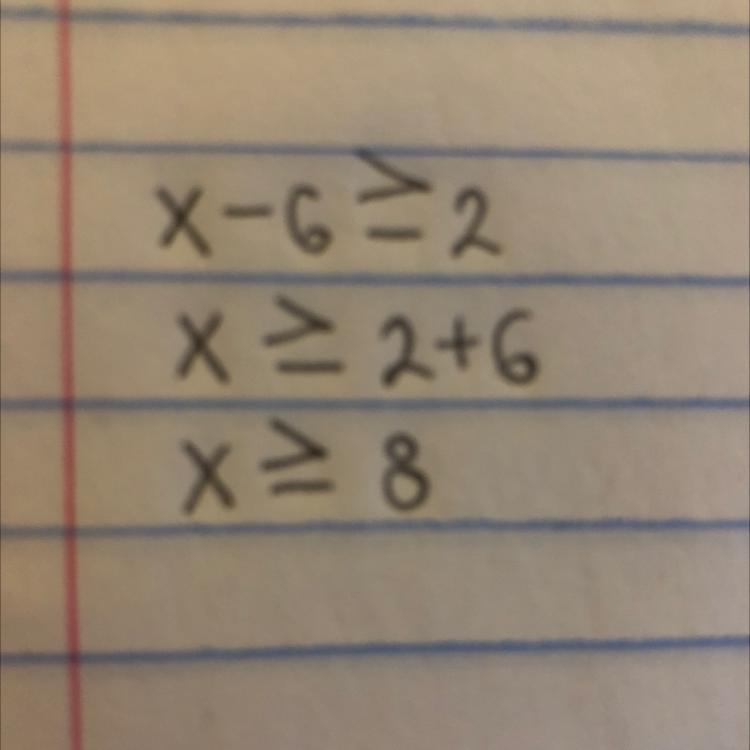 x-6≥2
x ≥ 2+6
x ≥ 8